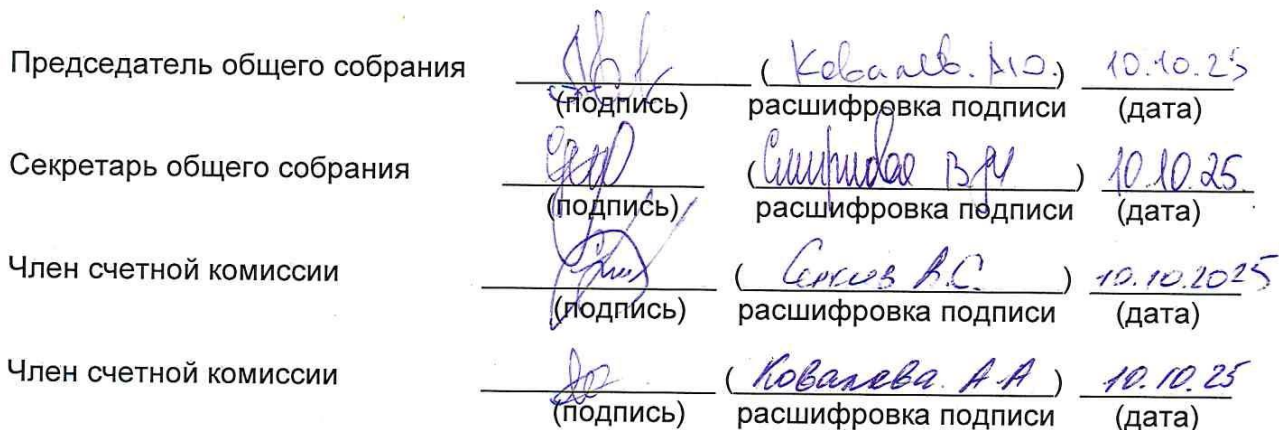 Председатель общего собрания ( Ковалев. А.Ю.) 10.10.25
(подпись) расшифровка подписи (дата)
Секретарь общего собрания (Смирнова В ) 10.10.25.
(подпись) расшифровка подписи (дата)
Член счетной комиссии ( А.С. ) 10.10.2025
(подпись) расшифровка подписи (дата)
Член счетной комиссии ( Ковалева. А.А ) 10.10.25
(подпись) расшифровка подписи (дата)